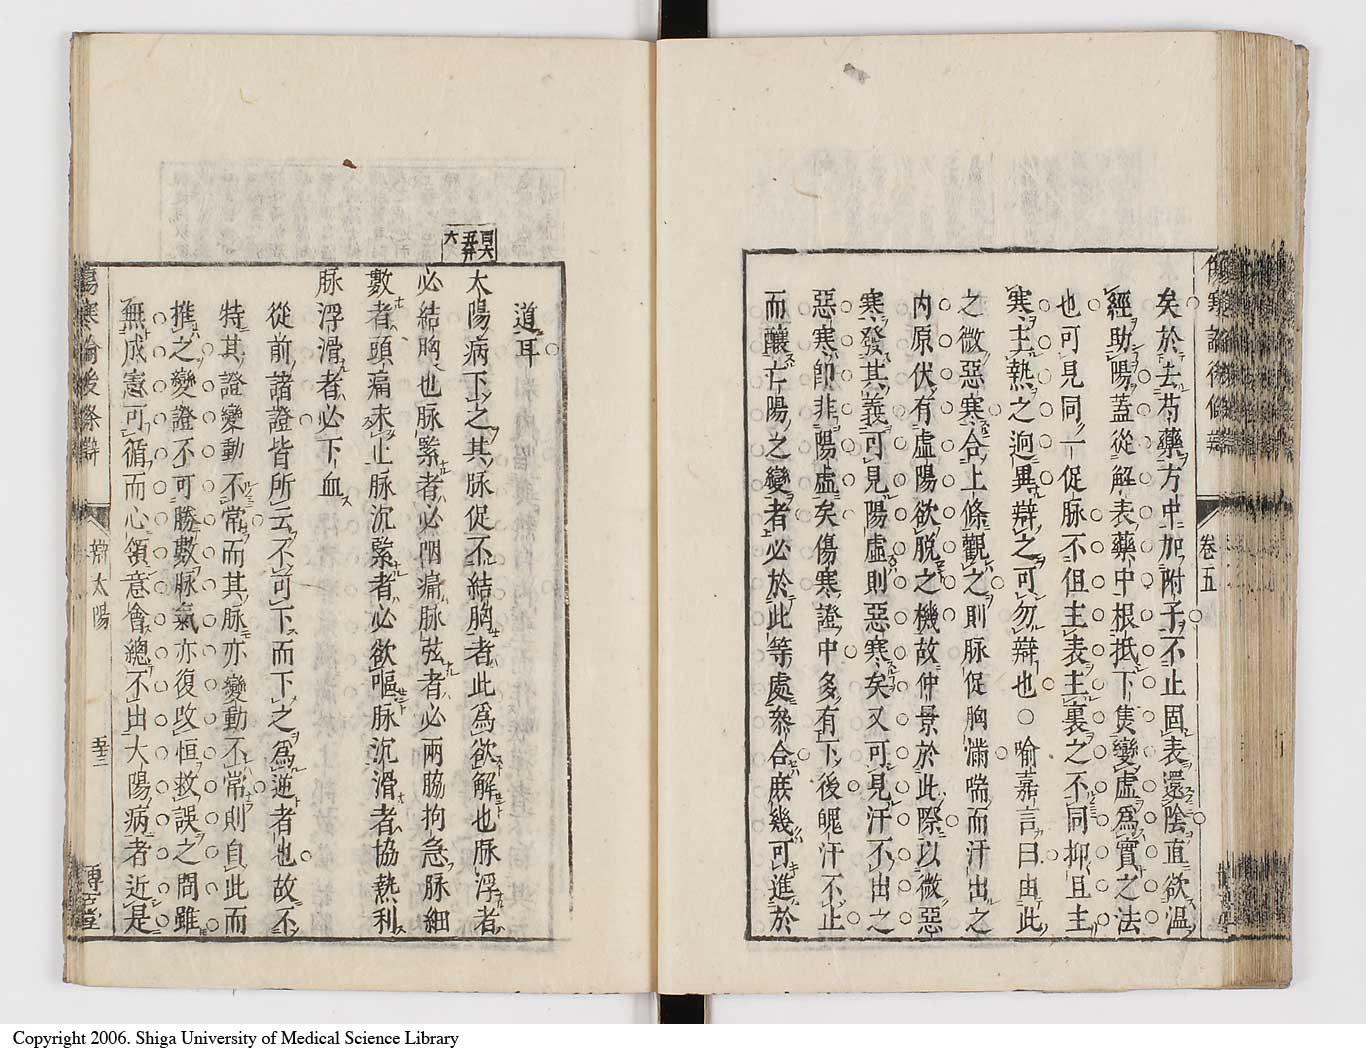 卷五
矣於去芍藥方中加附子不止固表還陰直欲溫
經助陽蓋從解表藥中根抵下焦變虛爲實之法
也可見同一促脉不但主表主裏之不同抑且主
寒主熱之迥異辯之可勿辯也○喻嘉言曰由此
之微惡寒合上條觀之則脉促胸滿喘而汗出之
内原伏有虛陽欲脱之機故仲景於此際以微惡
寒發其義可見陽虛則惡寒矣又可見汗不出之
惡寒卽非陽虛矣傷寒證中多有下後魄汗不止
而釀亡陽之變者必於此等處參合庶幾可進於
道耳
太陽病下之其脉促不結胸者此爲欲解也脉浮者
必結胸也脉緊者必咽痛脉弦者必兩脇拘急脉細
數者頭痛未止脉沉緊者必欲嘔脉沉滑者協熱利
脉浮滑者必下血
從前諸證皆所云不可下而下之爲逆者也故不
特其證變動不常而其脉亦變動不常則自此而
推之變證不可勝數脉氣亦復攺恒救誤之問雖
無成憲可循而心領意會總不出太陽病者近是
傷寒論後條辯
辯太陽
Copyright 2006. Shiga University of Medical Science Library